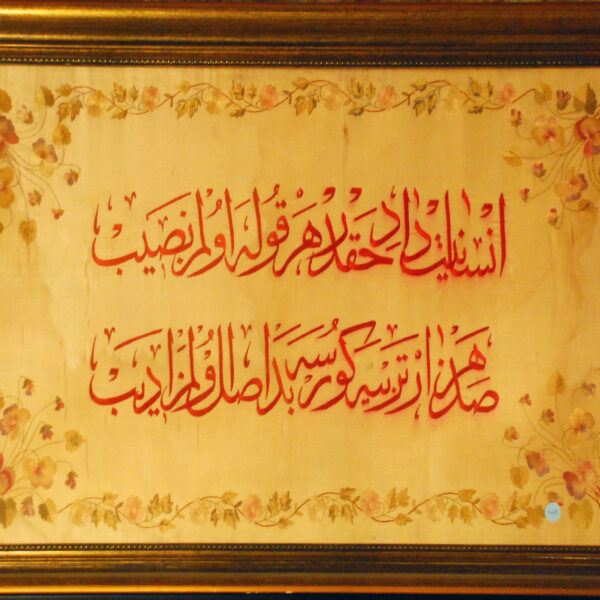 انسانیت داد حقدر هر قوله اولمز نصیب
صد هزار تربیه كورسه بد اصل اولمز ادیب